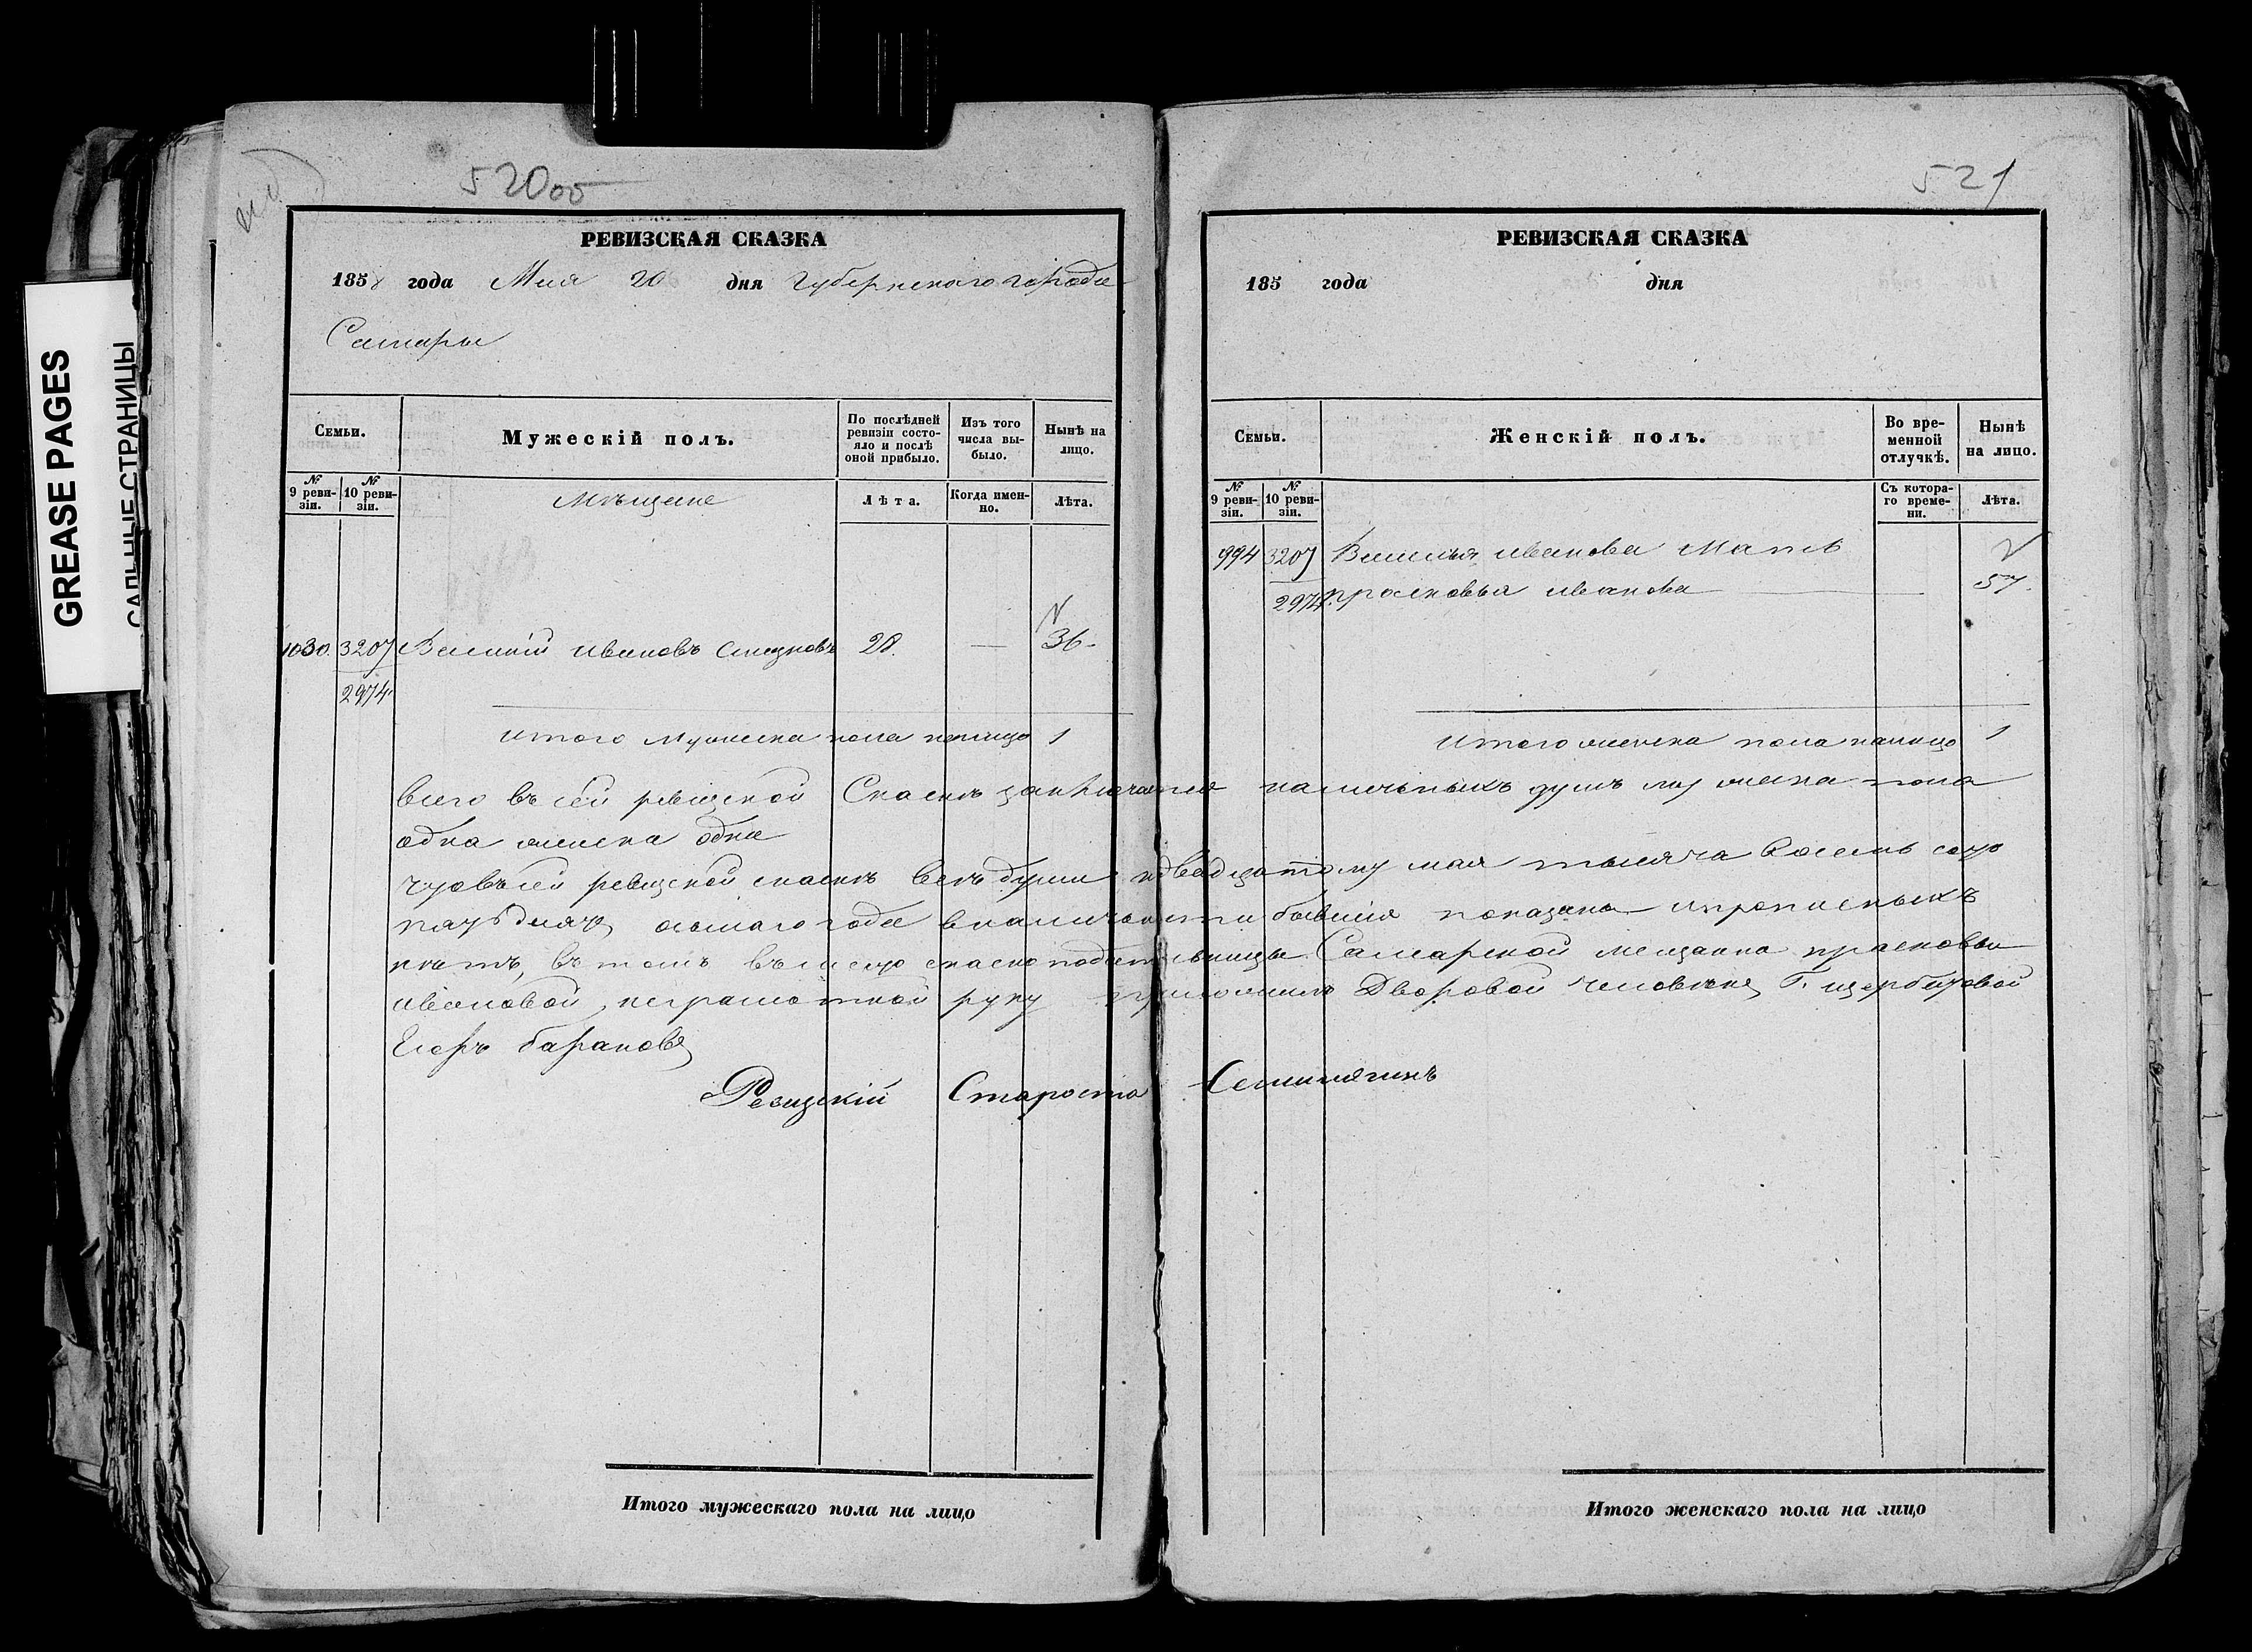 GREASE PAGES
САЛЬНЫЕ СТРАНИЦЫ
520об
РЕВИЗСКАЯ СКАЗКА
1858 года Мая 20 дня Губернскаго города
Самары
Семьи.
Мужескій полъ.
По послѣдней ревизіи состояло и послѣ оной прибыло.
Изъ того числа выбыло.
Нынѣ на лицо.
№ 9 ревизіи.
№ 10 ревизіи.
Мѣщане
Лѣта.
Когда именно.
Лѣта.
1030. 3207 Василій Ивановъ 28. — 36.
2974.
Итого мужеска пола налицо 1
521
РЕВИЗСКАЯ СКАЗКА
185 года дня
Семьи.
Женскій полъ.
Во временной отлучкѣ.
Нынѣ на лицо.
№ 9 ревизіи.
№ 10 ревизіи.
Съ котораго времени.
Лѣта.
994 3207 Василья Иванова Мать
2974. Прасковья Иванова — 57.
Итого женска пола налицо 1
всего въ сей ревизской Сказкѣ заключается наличныхъ душъ мужеска пола
одна женска одна
Что въ сей ревизской сказкѣ всѣ души къ двадцатому мая тысяча восемь сотъ
пятьдесятъ осьмаго года в наличности бывшія показаны и прописныхъ
нѣтъ, въ томъ вмѣсто сказкоподательницы Самарской мещанки прасковьи
ивановой, неграмотной руку приложилъ Дворовой человѣкъ Г. щербатовой
Егоръ барановъ
Ревизскій Староста
Итого мужескаго пола на лицо
Итого женскаго пола на лицо